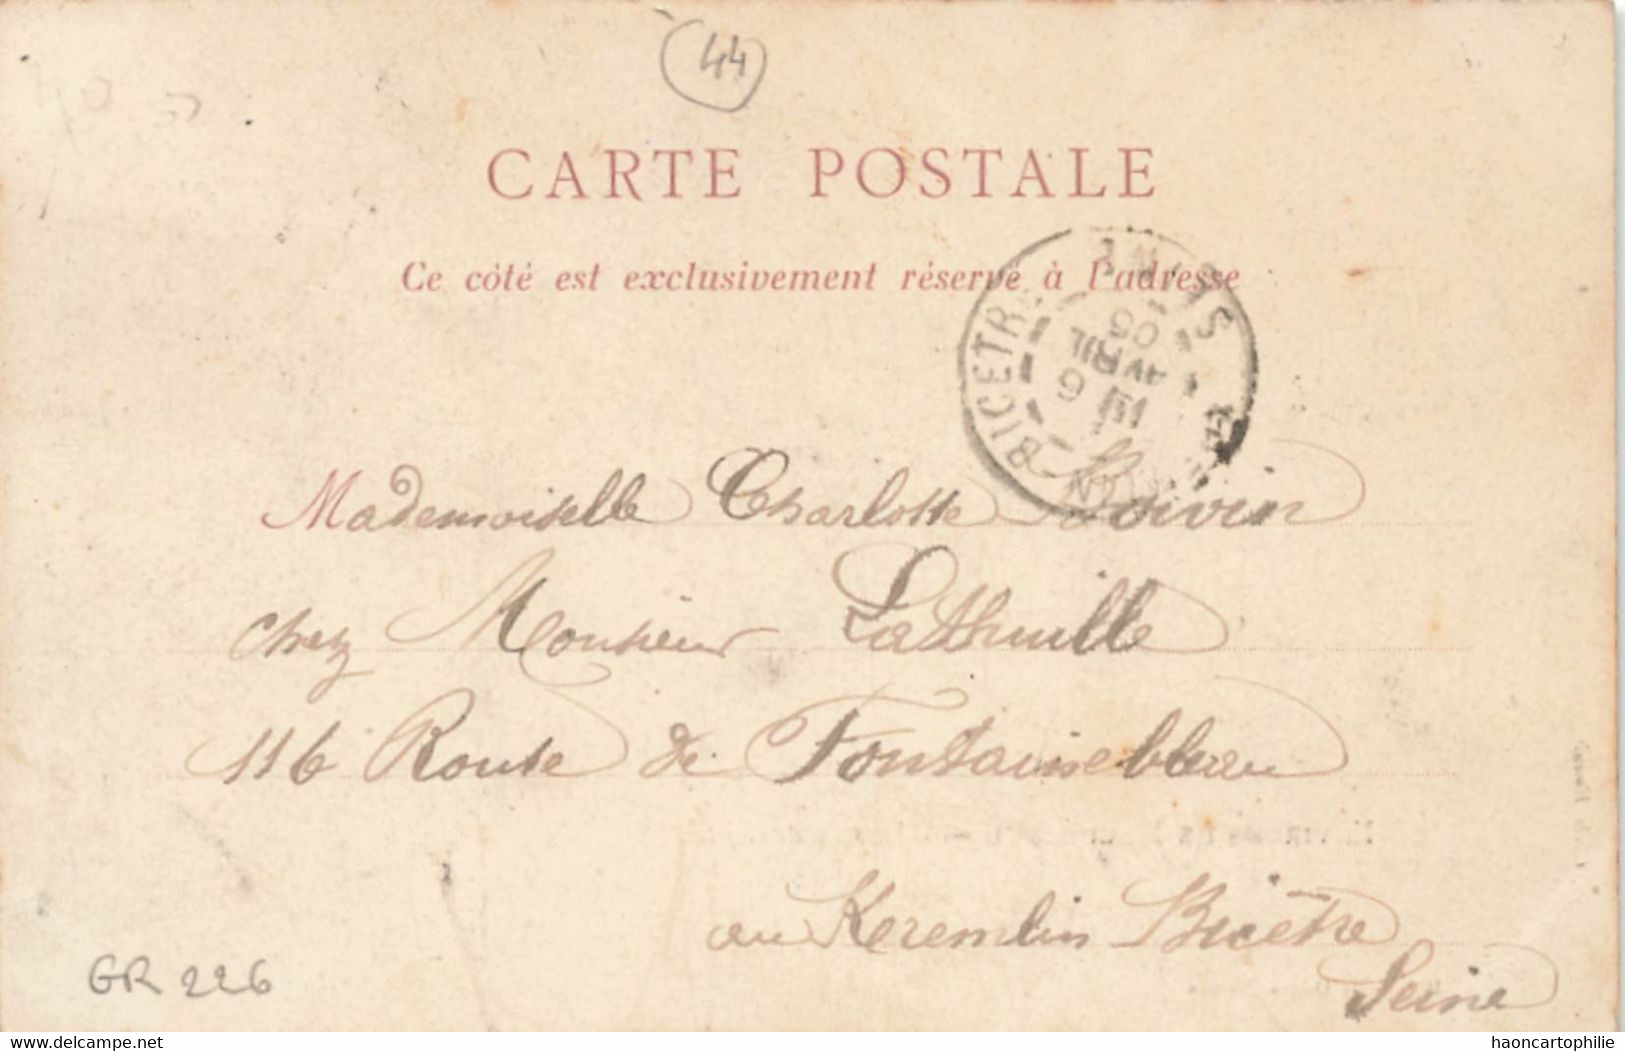 44
CARTE POSTALE
Ce côté est exclusivement réservé à l'adresse
BICETRE
6
AVRIL
05
Mademoiselle Charlotte Boivin
chez Monsieur Lathuille
116 Route de Fontainebleau
au Keremlin Bicêtre
Seine
GR 226
delcampe.net
haoncartophilie